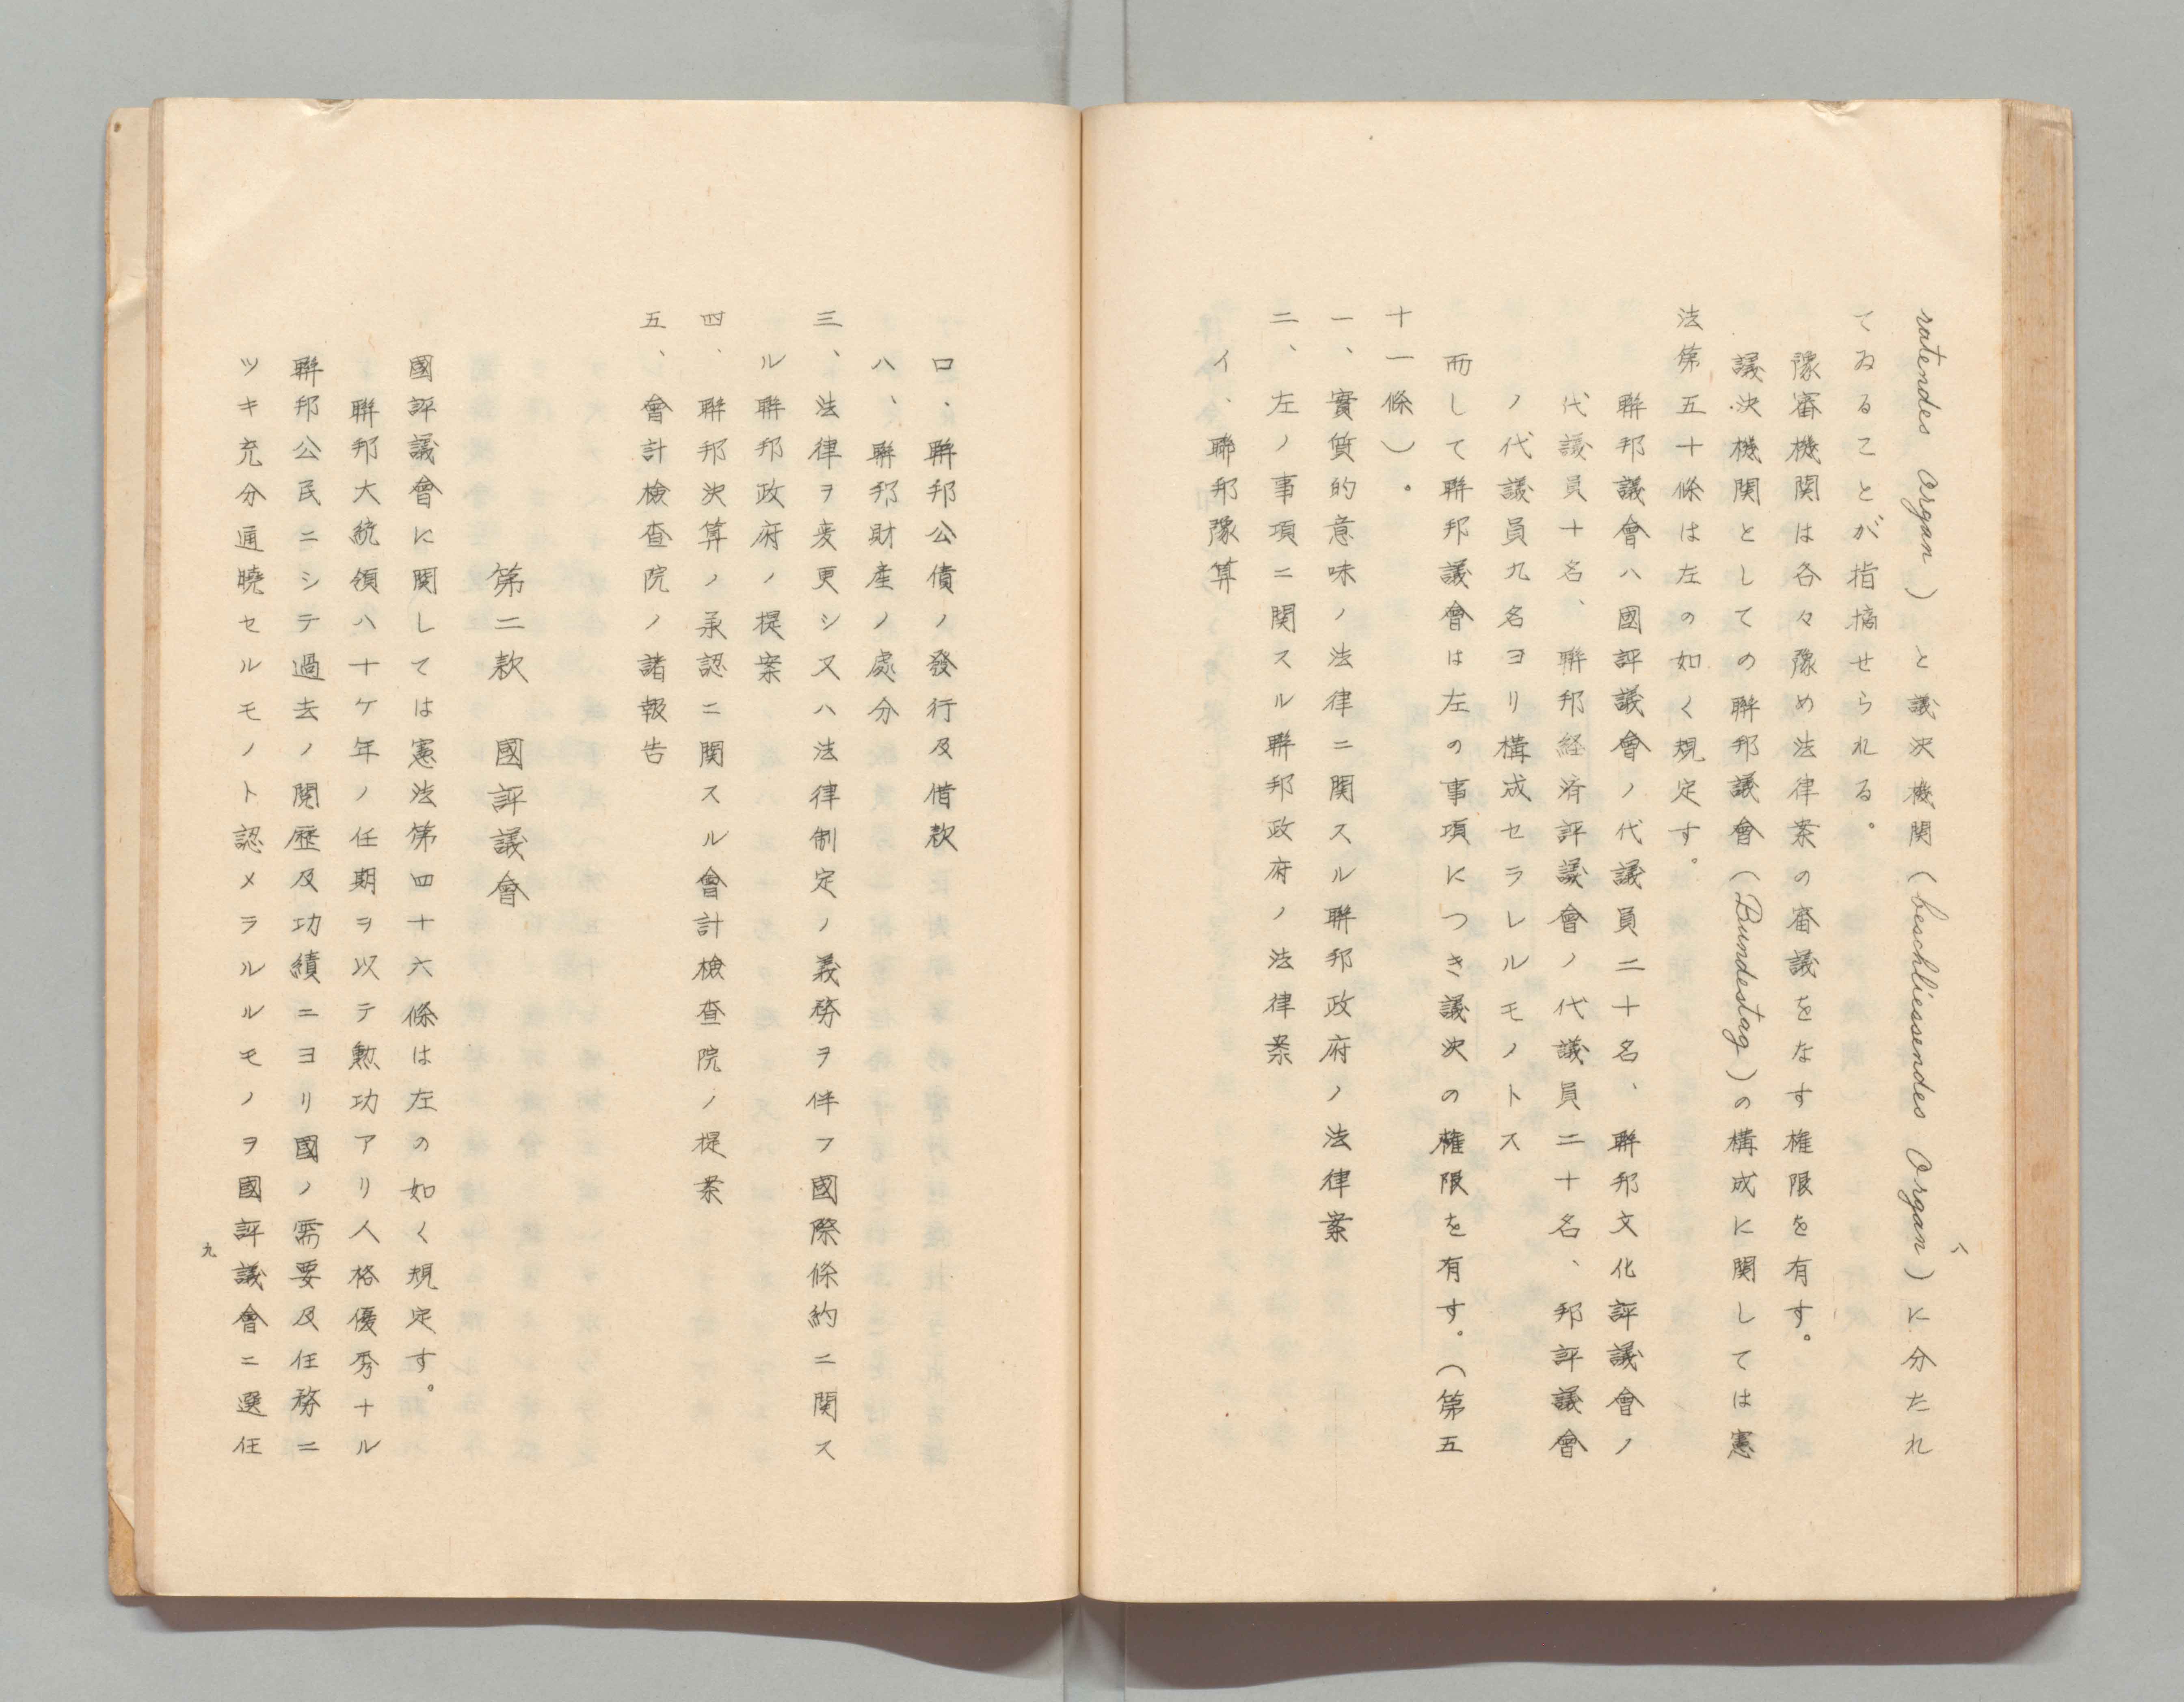 八
ratendes Organ）と議決機関（beschliessendes Organ）に分たれ
てゐることが指摘せられる。
豫審機関は各々豫め法律案の審議をなす権限を有す。
議決機関としての聯邦議會（Bundestag）の構成に関しては憲
法第五十條は左の如く規定す。
聯邦議會ハ國評議會ノ代議員二十名、聯邦文化評議會ノ
代議員十名、聯邦経済評議會ノ代議員二十名、邦評議會
ノ代議員九名ヨリ構成セラレルモノトス
而して聯邦議會は左の事項につき議決の権限を有す。（第五
十一條）。
一、實質的意味ノ法律ニ関スル聯邦政府ノ法律案
二、左ノ事項ニ関スル聯邦政府ノ法律案
イ、聯邦豫算
ロ、聯邦公債ノ發行及借款
ハ、聯邦財産ノ處分
三、法律ヲ変更シ又ハ法律制定ノ義務ヲ伴フ國際條約ニ関ス
ル聯邦政府ノ提案
四、聯邦決算ノ承認ニ関スル會計檢査院ノ提案
五、會計檢査院ノ諸報告
第二款　國評議會
國評議會に関しては憲法第四十六條は左の如く規定す。
聯邦大統領ハ十ケ年ノ任期ヲ以テ勲功アリ人格優秀ナル
聯邦公民ニシテ過去ノ閲歴及功績ニヨリ國ノ需要及任務ニ
ツキ充分通曉セルモノト認メラルルモノヲ國評議會ニ選任
九